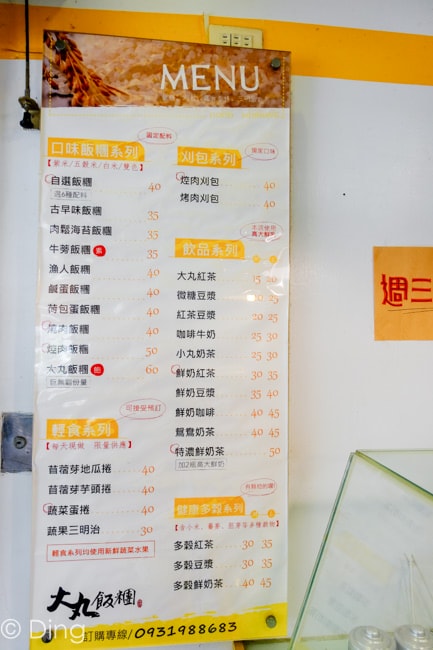 MENU
固定配料
口味飯糰系列
【紫米/五穀米/白米/雙色】
自選飯糰 40
選6種配料
古早味飯糰 35
肉鬆海苔飯糰 35
牛蒡飯糰 素 35
漁人飯糰 40
鹹蛋飯糰 40
荷包蛋飯糰 40
燒肉飯糰 40
焢肉飯糰 50
大丸飯糰 飽 60
巨無霸份量
可接受預訂
輕食系列
【每天現做 限量供應】
苜蓿芽地瓜捲 40
苜蓿芽芋頭捲 40
蔬菜蛋捲 40
蔬果三明治 30
輕食系列均使用新鮮蔬菜水果
大丸飯糰
訂購專線/0931988683
刈包系列
焢肉刈包 40
烤肉刈包 40
本店使用
高大鮮乳
飲品系列
大丸紅茶 15 20
微糖豆漿 20 25
紅茶豆漿 20 25
咖啡牛奶 25 30
小丸奶茶 25 30
鮮奶紅茶 30 35
鮮奶豆漿 35 40
鮮奶咖啡 40 45
鴛鴦奶茶 40 45
特濃鮮奶茶 50
加2瓶高大鮮奶
健康多穀系列
多穀紅茶 30 35
多穀豆漿 30 35
多穀鮮奶茶 40 45
週三
© Ding